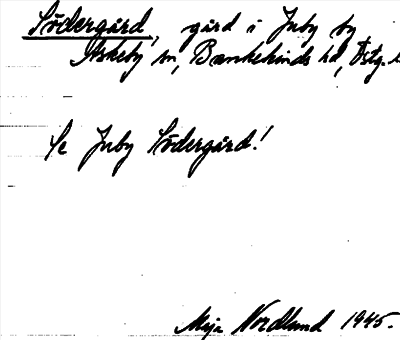 Södergård, gård i Juby by
Askeby sn, Bankekinds hd, Östg. l
Se Juby Södergård!
Maja Nordlund 1945.